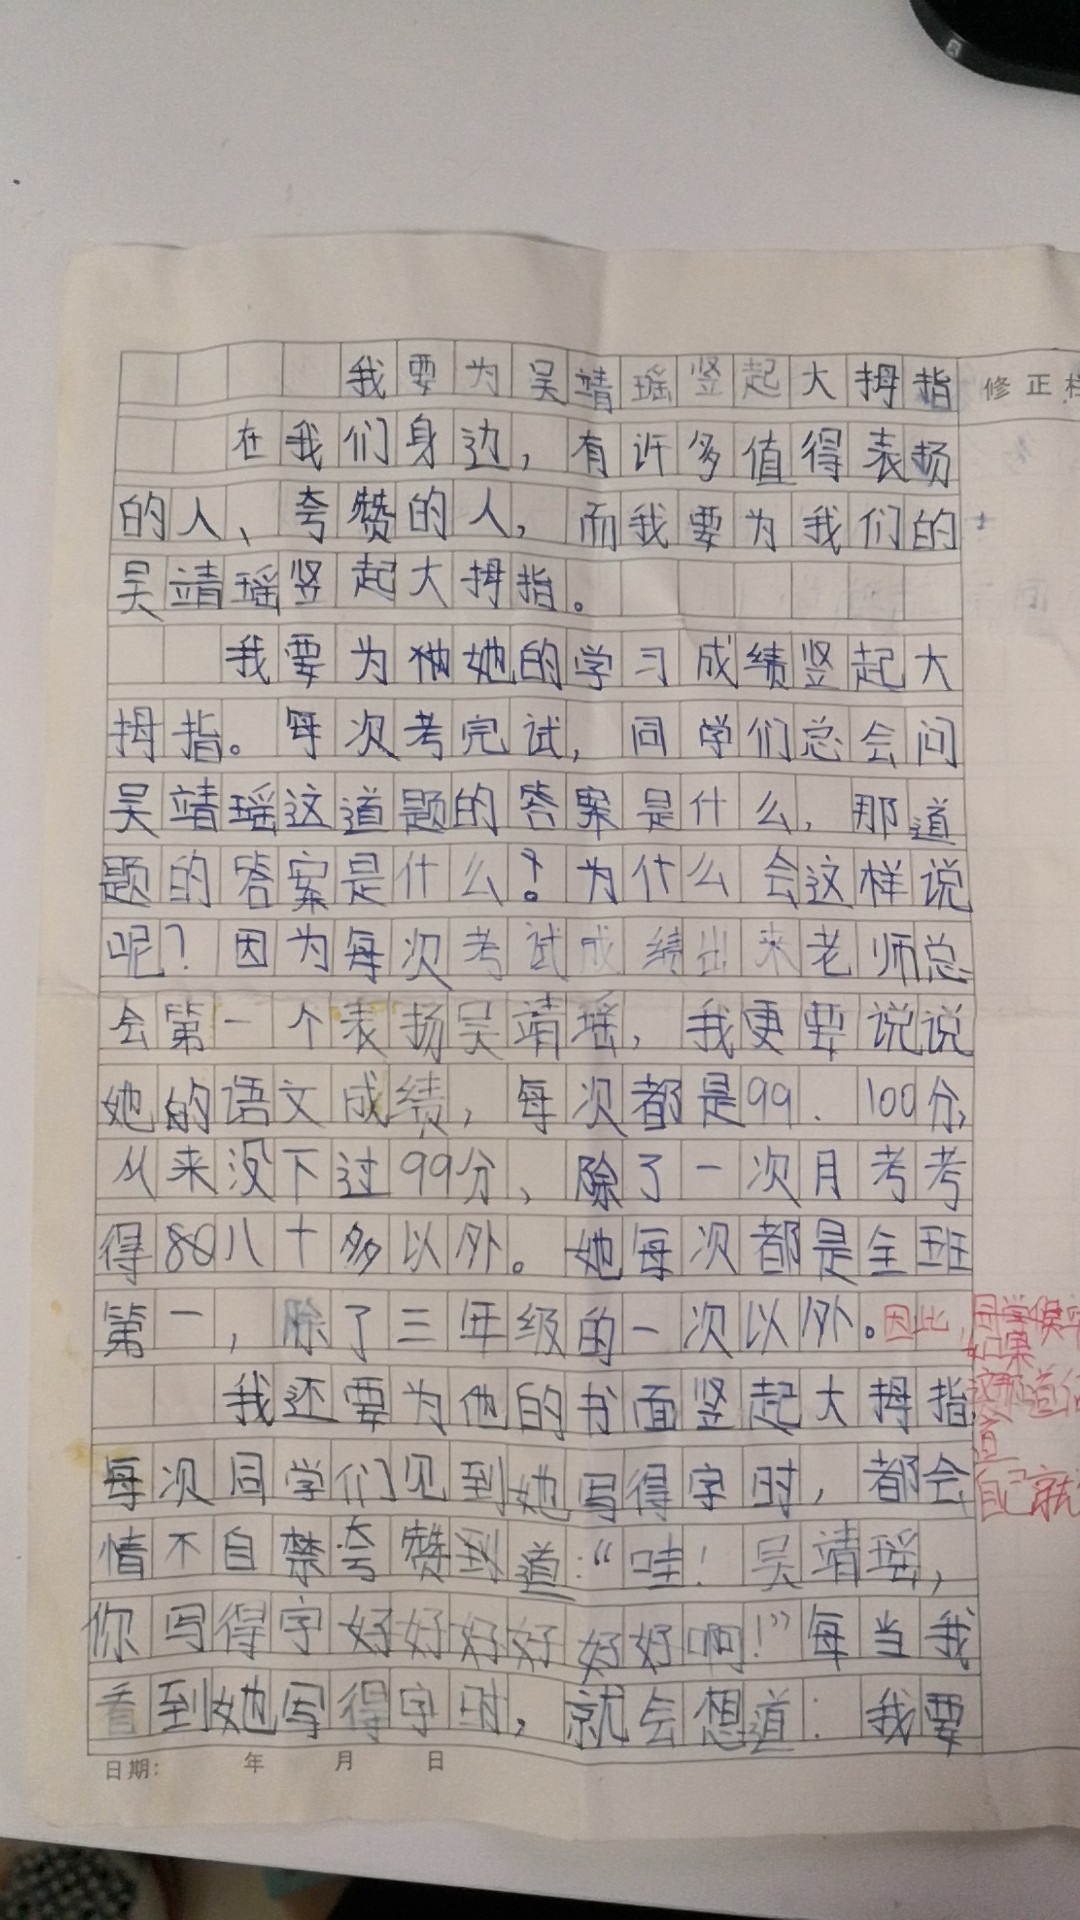 我要为吴靖瑶竖起大拇指
修正栏
在我们身边，有许多值得表扬
的人、夸赞的人，而我要为我们的
吴靖瑶竖起大拇指。
我要为她的学习成绩竖起大
拇指。每次考完试，同学们总会问
吴靖瑶这道题的答案是什么，那道
题的答案是什么？为什么会这样说
呢？因为每次考试成绩出来老师总
会第一个表扬吴靖瑶，我更要说说
她的语文成绩，每次都是99、100分，
从来没下过99分，除了一次月考考
得80八十多以外。她每次都是全班
第一，除了三年级的一次以外。因此，同学
如果
我还要为他的书面竖起大拇指
道
每次同学们见到她写得字时，都会
自己就
情不自禁夸赞到道：“哇！吴靖瑶，
你写得字好好好好好好啊！”每当我
看到她写得字时，就会想道：我要
日期： 年 月 日